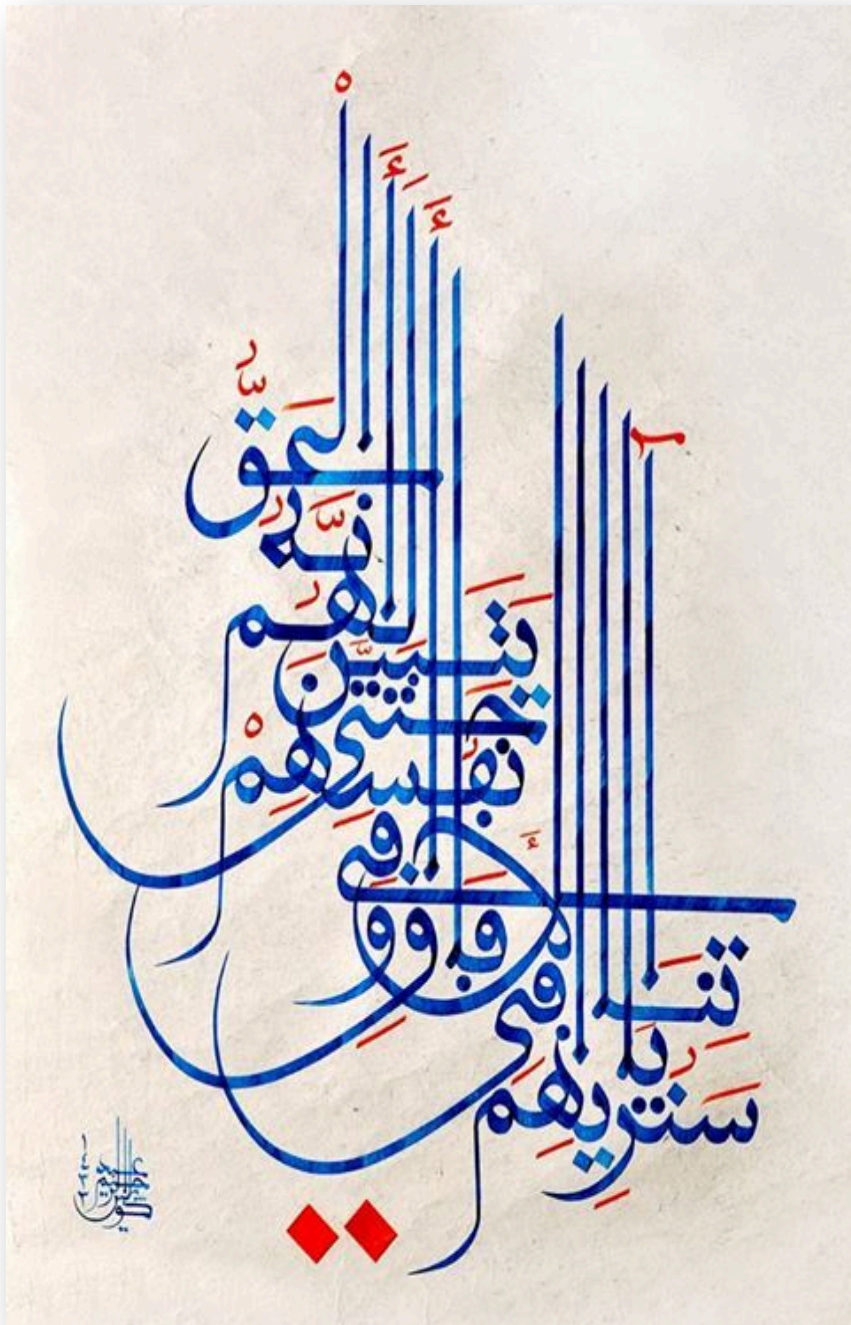 سَنُرِيهِمْ آيَاتِنَا فِي الْآفَاقِ وَفِي أَنْفُسِهِمْ حَتَّى يَتَبَيَّنَ لَهُمْ أَنَّهُ الْحَقُّ